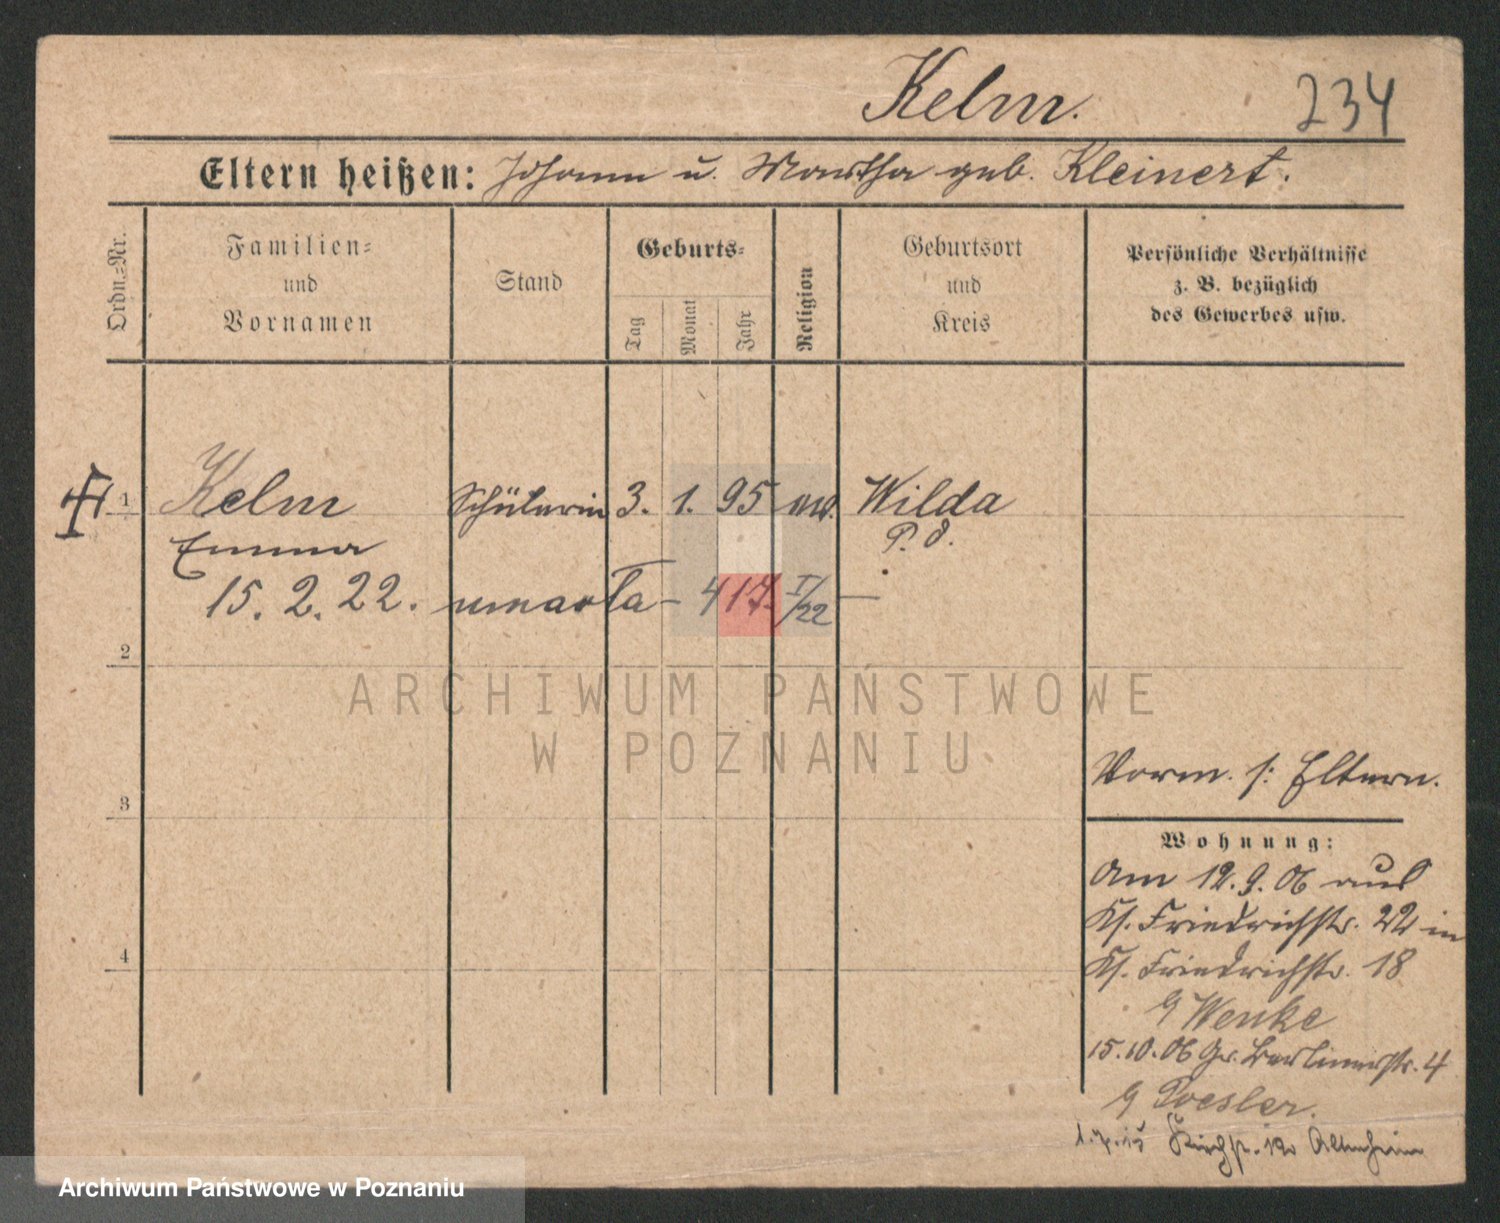 Kelm. 234
Eltern heißen: Johann u. Martha geb. Kleinert.
Ordn.-Nr.
Familien-
und
Vornamen
Stand
Geburts-
Tag
Monat
Jahr
Religion
Geburtsort
und
Kreis
Persönliche Verhältnisse
z. B. bezüglich
des Gewerbes usw.
1 Kelm Schülerin 3. 1. 95 ev. Wilda
Emma P. O.
15. 2. 22. umarła – 417. I/22 –
2
ARCHIWUM PAŃSTWOWE
W POZNANIU
Vorm. s: Eltern.
3
Wohnung:
Am 12. 9. 06 aus
Kl. Friedrichstr. 22 in
4 Kl. Friedrichstr. 18
Wenke
15.10.06 Gr. Berlinerstr. 4
Poesler.
1.7.15 Altenheim
Archiwum Państwowe w Poznaniu